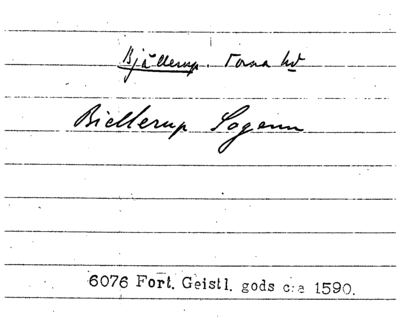 Bjällerup. Torna hd
Biellerup Sogenn
6076 Fort. Geistl. gods c:a 1590.